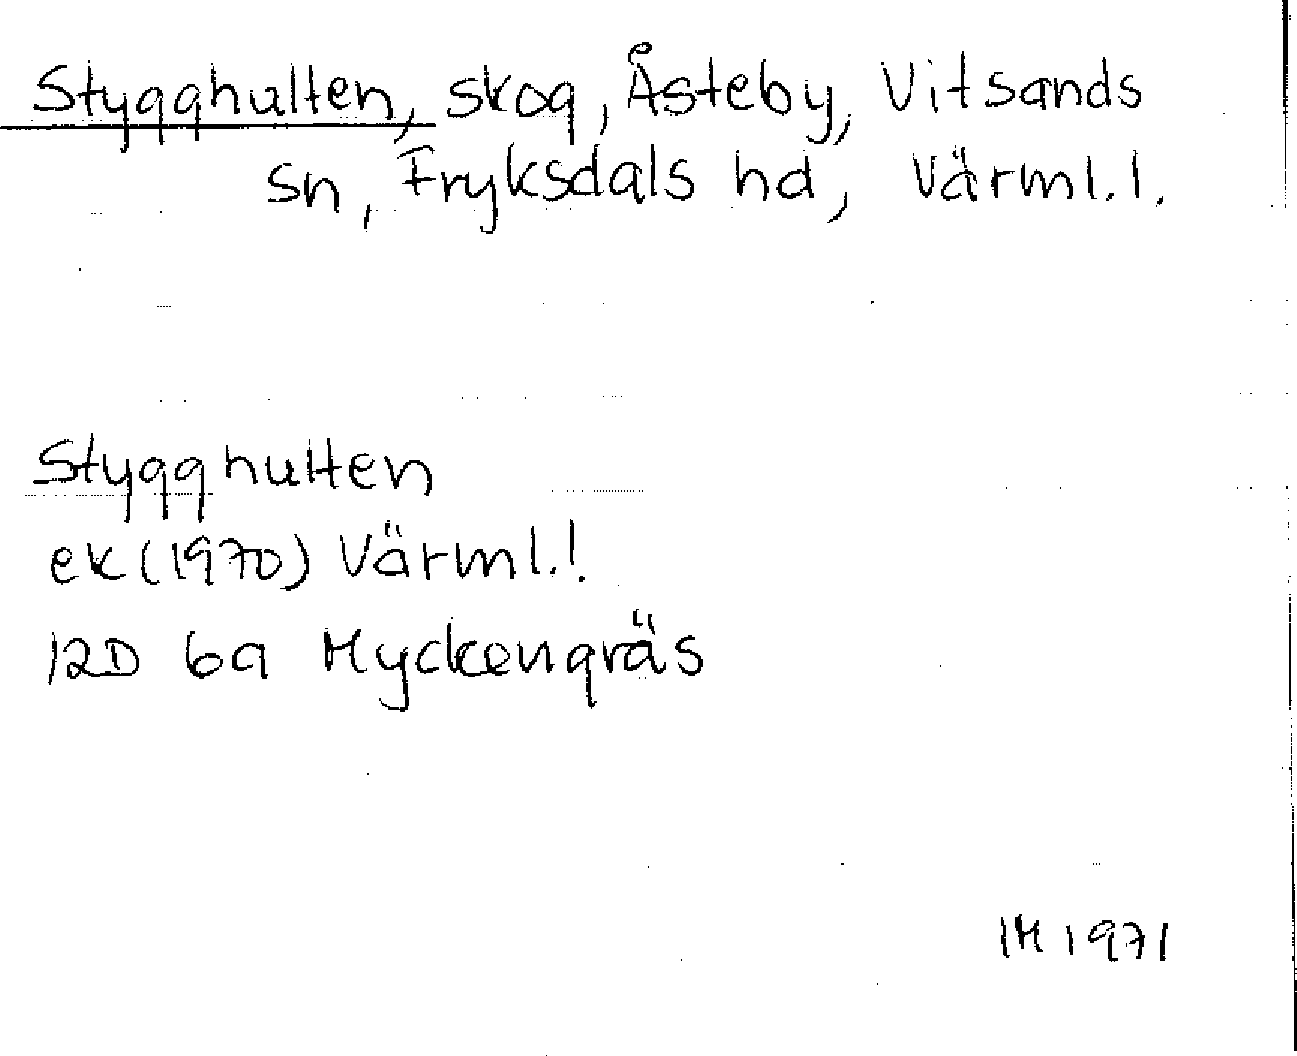 Stygghulten, skog, Åsteby, Vitsands
sn, Fryksdals hd, Värml.l.
Stygghulten
ek (1970) Värml.l.
12D 6a Myckengräs
IM 1971